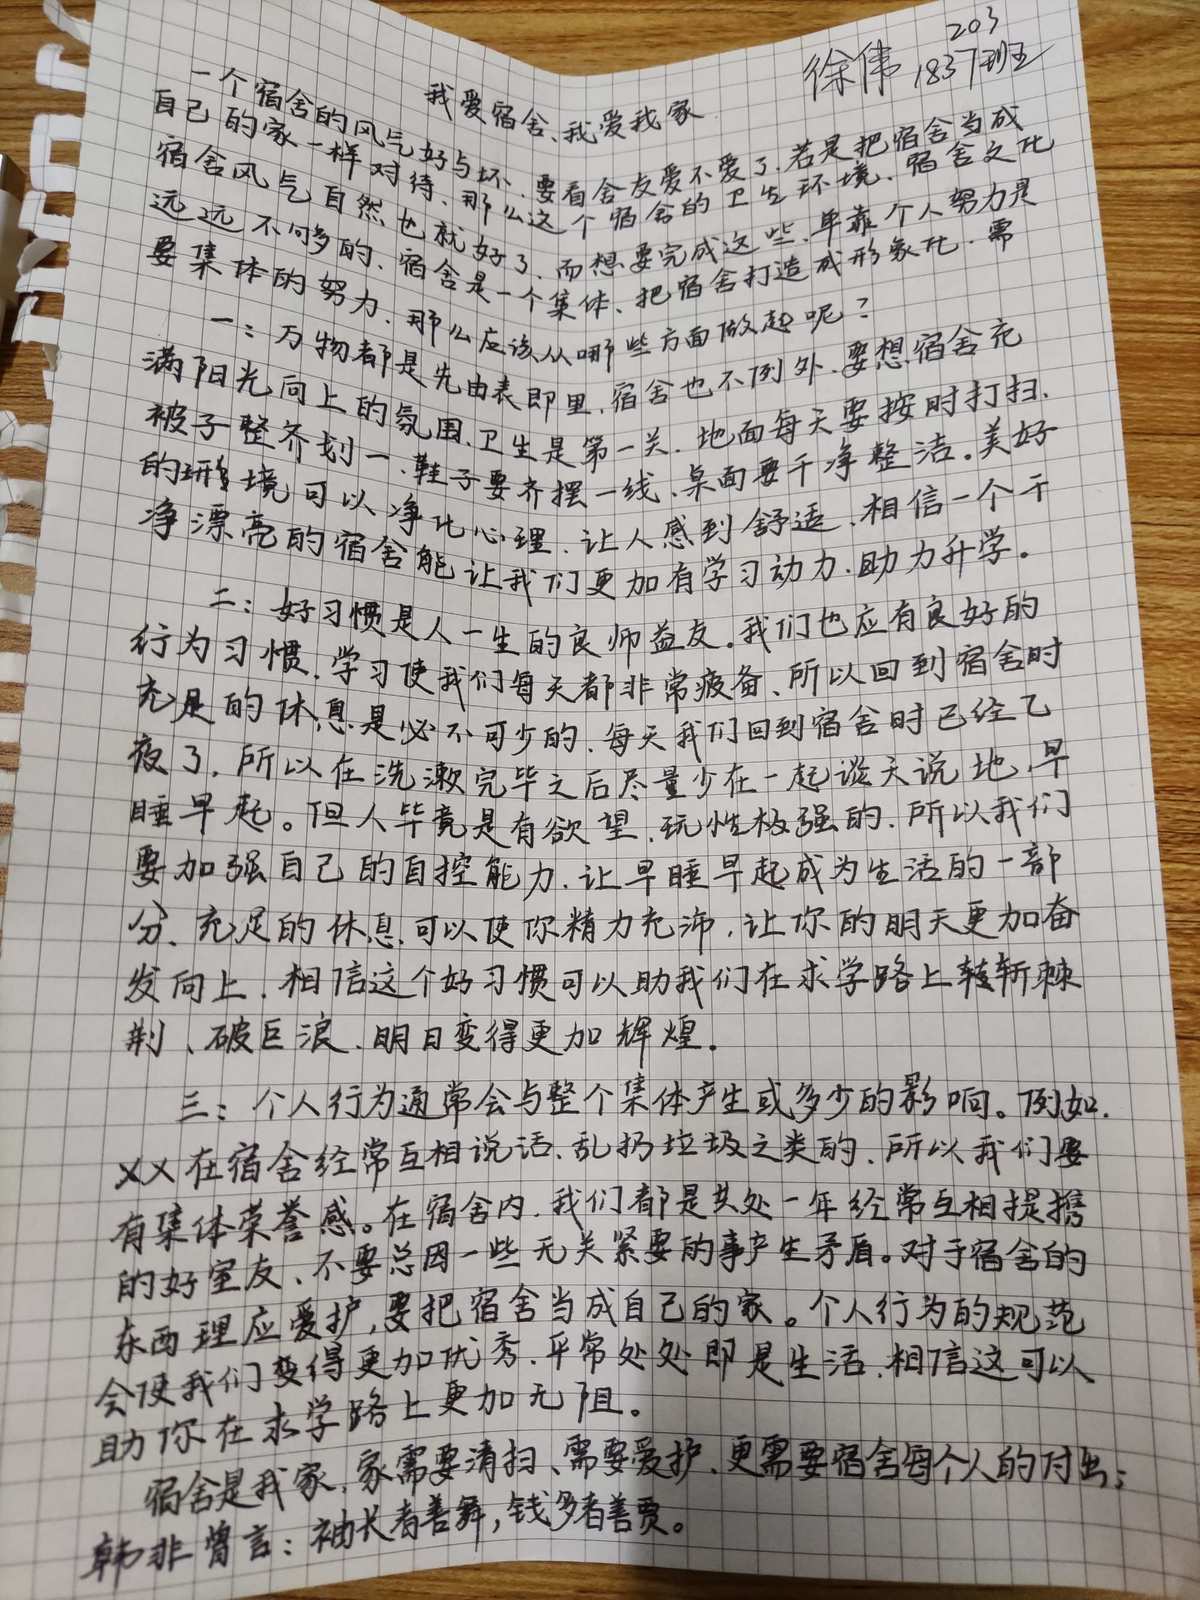 203
徐伟 1837班
我爱宿舍、我爱我家
一个宿舍的风气好与坏、要看舍友爱不爱了、若是把宿舍当成
自己的家一样对待、那么这个宿舍的卫生环境、宿舍文化
宿舍风气自然也就好了、而想要完成这些、单靠个人努力是
远远不够的、宿舍是一个集体、把宿舍打造成形象化、需
要集体的努力、那么应该从哪些方面做起呢？
一：万物都是先由表即里、宿舍也不例外、要想宿舍充
满阳光向上的氛围、卫生是第一关、地面每天要按时打扫、
被子整齐划一、鞋子要齐摆一线、桌面要干净整洁。美好
的环境可以净化心理、让人感到舒适、相信一个干
净漂亮的宿舍能让我们更加有学习动力、助力升学。
二：好习惯是人一生的良师益友。我们也应有良好的
行为习惯、学习使我们每天都非常疲备、所以回到宿舍时
充足的休息是必不可少的、每天我们回到宿舍时已经乙
夜了，所以在洗漱完毕之后尽量少在一起谈天说地、早
睡早起。但人毕竟是有欲望、玩性极强的、所以我们
要加强自己的自控能力、让早睡早起成为生活的一部
分、充足的休息可以使你精力充沛，让你的明天更加奋
发向上、相信这个好习惯可以助我们在求学路上斩棘
荆、破巨浪、明日变得更加辉煌。
三：个人行为通常会与整个集体产生或多少的影响。例如、
XX在宿舍经常互相说话、乱扔垃圾之类的、所以我们要
有集体荣誉感。在宿舍内、我们都是共处一年经常互相提携
的好室友、不要总因一些无关紧要的事产生矛盾。对于宿舍的
东西理应爱护，要把宿舍当成自己的家。个人行为的规范
会使我们变得更加优秀、平常处处即是生活、相信这可以
助你在求学路上更加无阻。
宿舍是我家，家需要清扫、需要爱护、更需要宿舍每个人的付出；
韩非曾言：袖长者善舞，钱多者善贾。